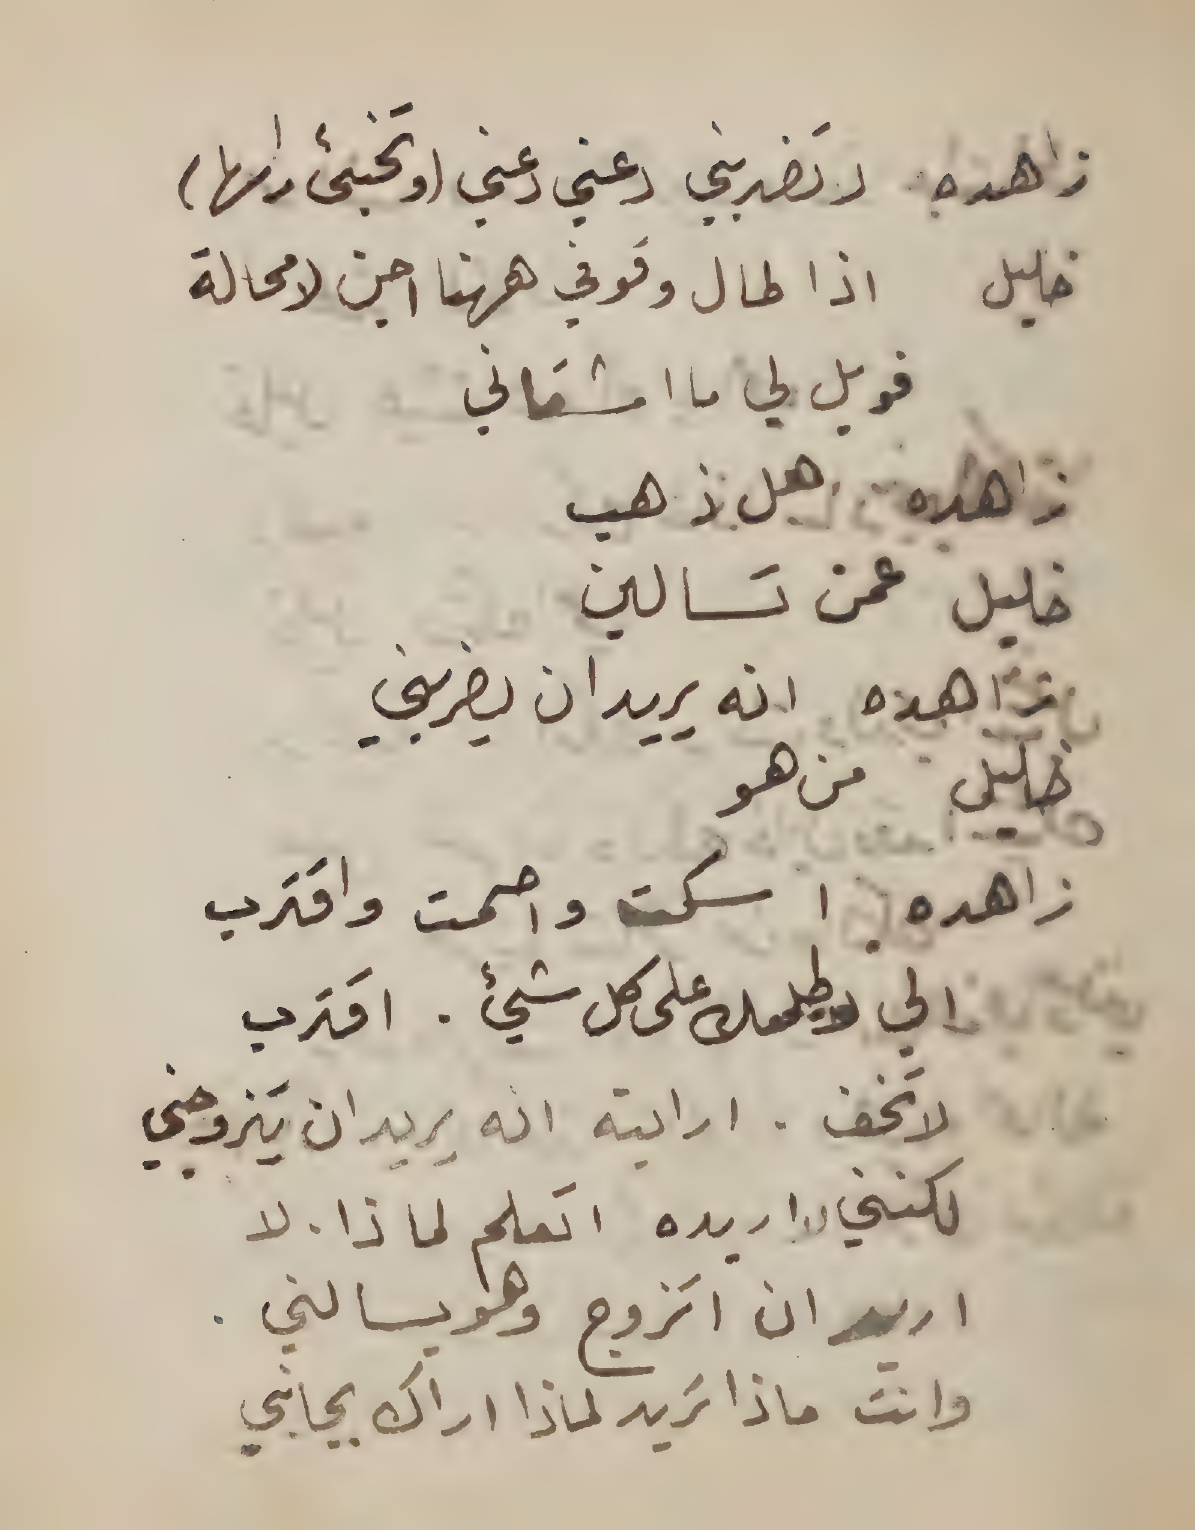 زاهده لا تضربني دعني دعني (وتخبئ راسها)
خليل اذا طال وقوفي ههنا اجن لا محالة
فويل لي ما اشقاني
زاهده هل ذهب
خليل عمن تسالين
زاهده انه يريد ان يضربني
خليل من هو
زاهده. اسكت واصمت واقترب
الي لاطلعك على كل شيئ. اقترب
لا تخف. ارايته انه يريد ان يتزوجني
لكنني لا اريده اتعلم لماذا. لا
اريد ان اتزوج وهو يسالني.
وانت ماذا تريد لماذا اراك بجانبي